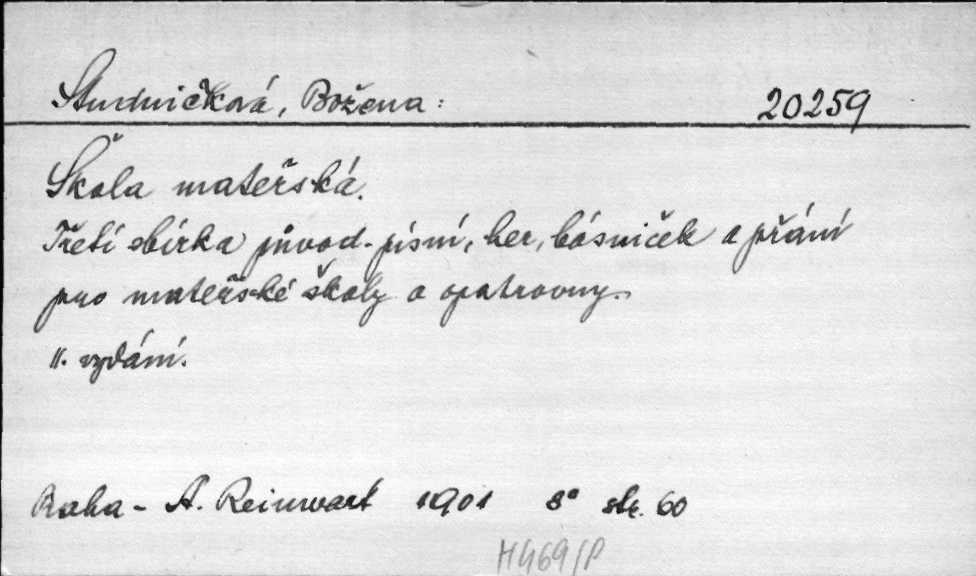 Studničková, Božena: 20259
Škola mateřská.
Třetí sbírka původ. písní, her, básniček a přání
pro mateřské školy a opatrovny.
II. vydání.
Praha - A. Reinwart 1901 8° str. 60
H469/P